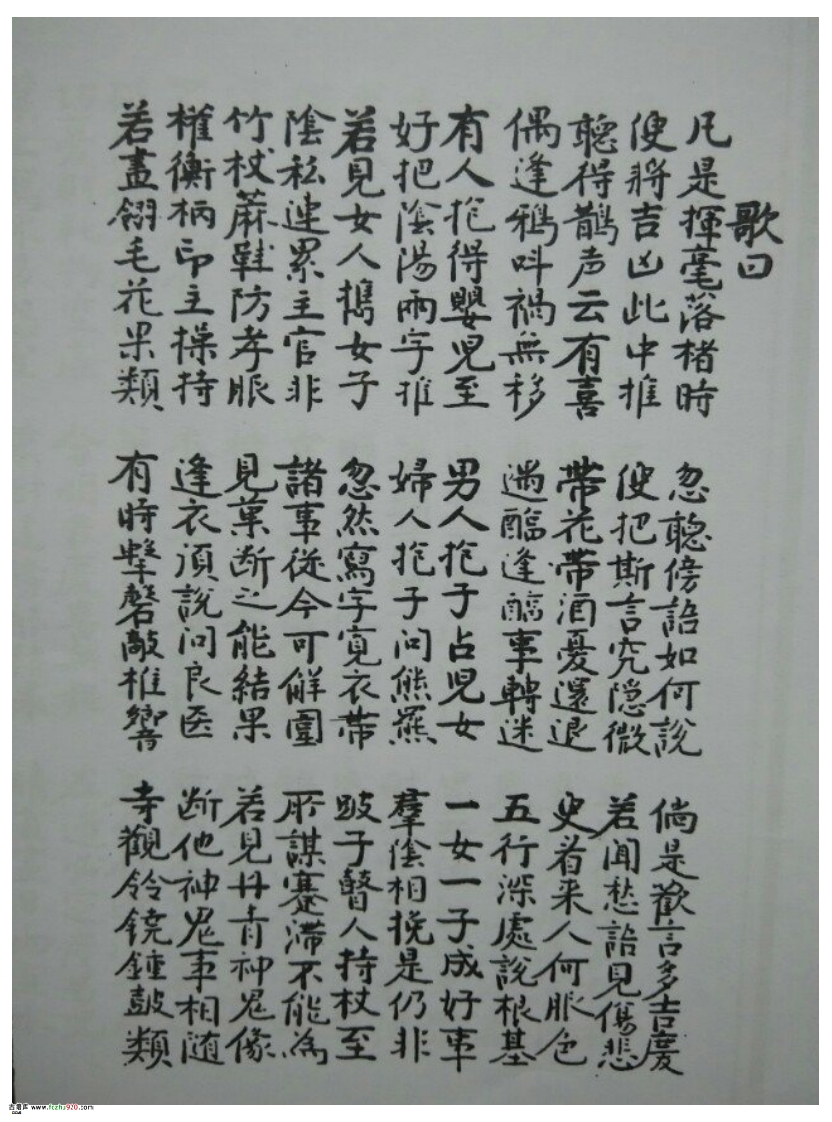 歌曰
凡是揮毫落楮時 忽聽傍語如何說 倘是歡言多吉慶
便將吉凶此中推 便把斯言究隐微 若聞愁語見傷悲
聽得鵲声云有喜 帶花帶酒憂還退 史看来人何服色
偶逢鴉叫禍無移 遇醯逢醋事轉迷 五行深處說根基
有人抱得嬰児至 男人抱子占児女 一女一子成好事
好把陰陽兩字推 婦人抱子问熊羆 羣陰相挽是仍非
若見女人攜女子 忽然寫字寬衣帶 跛子瞽人持杖至
陰私連累主官非 諸事從今可解圍 所謀蹇滯不能為
竹杖蔴鞋防孝服 見菓断之能結果 若見丹青神鬼像
權衡柄印主操持 逢衣須說问良医 断他神鬼事相随
若畫翎毛花果類 有時擊磬敲椎響 寺觀鈴鐃鐘鼓類